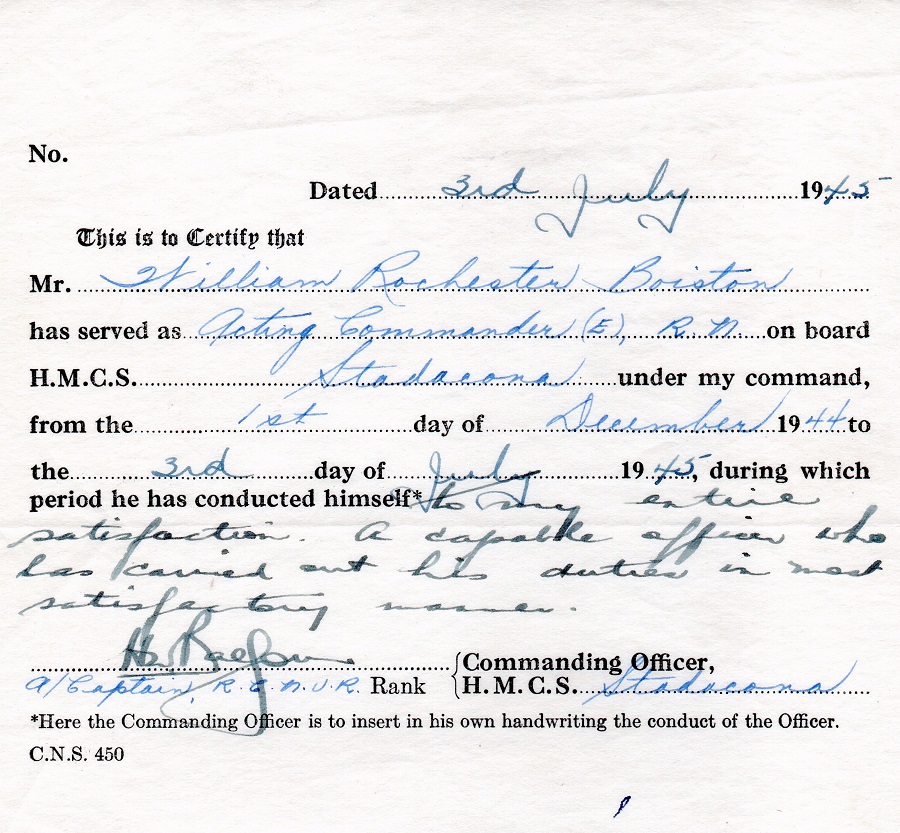 No.
Dated 3rd July 1945
This is to Certify that
Mr. William Rochester Boiston
has served as Acting Commander (E), R.N. on board
H.M.C.S. Stadacona under my command,
from the 1st day of December 1944 to
the 3rd day of July 1945, during which
period he has conducted himself* to my entire
satisfaction. A capable officer who
has carried out his duties in most
satisfactory manner.
Commanding Officer,
A/Captain, R.C.N.V.R. Rank H.M.C.S. Stadacona
*Here the Commanding Officer is to insert in his own handwriting the conduct of the Officer.
C.N.S. 450